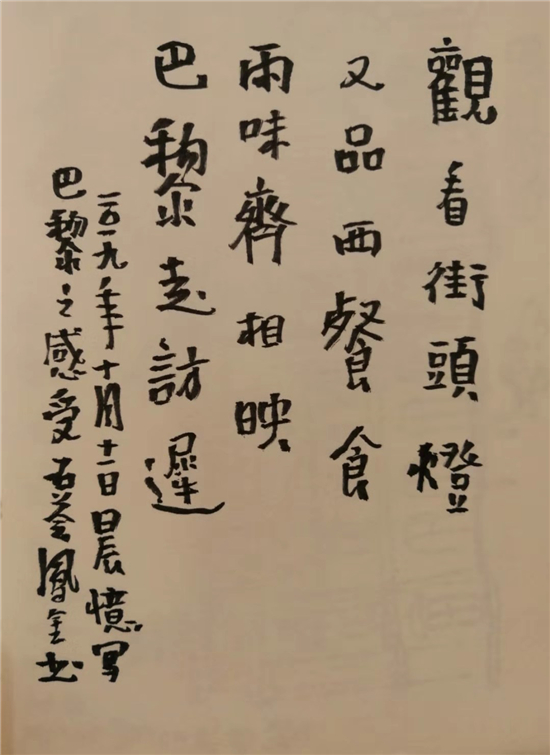 觀看街頭燈
又品西餐食
兩味齊相映
巴黎走訪遲
二〇一九年十月十一日晨憶写
巴黎之感受 古荃鳳全书